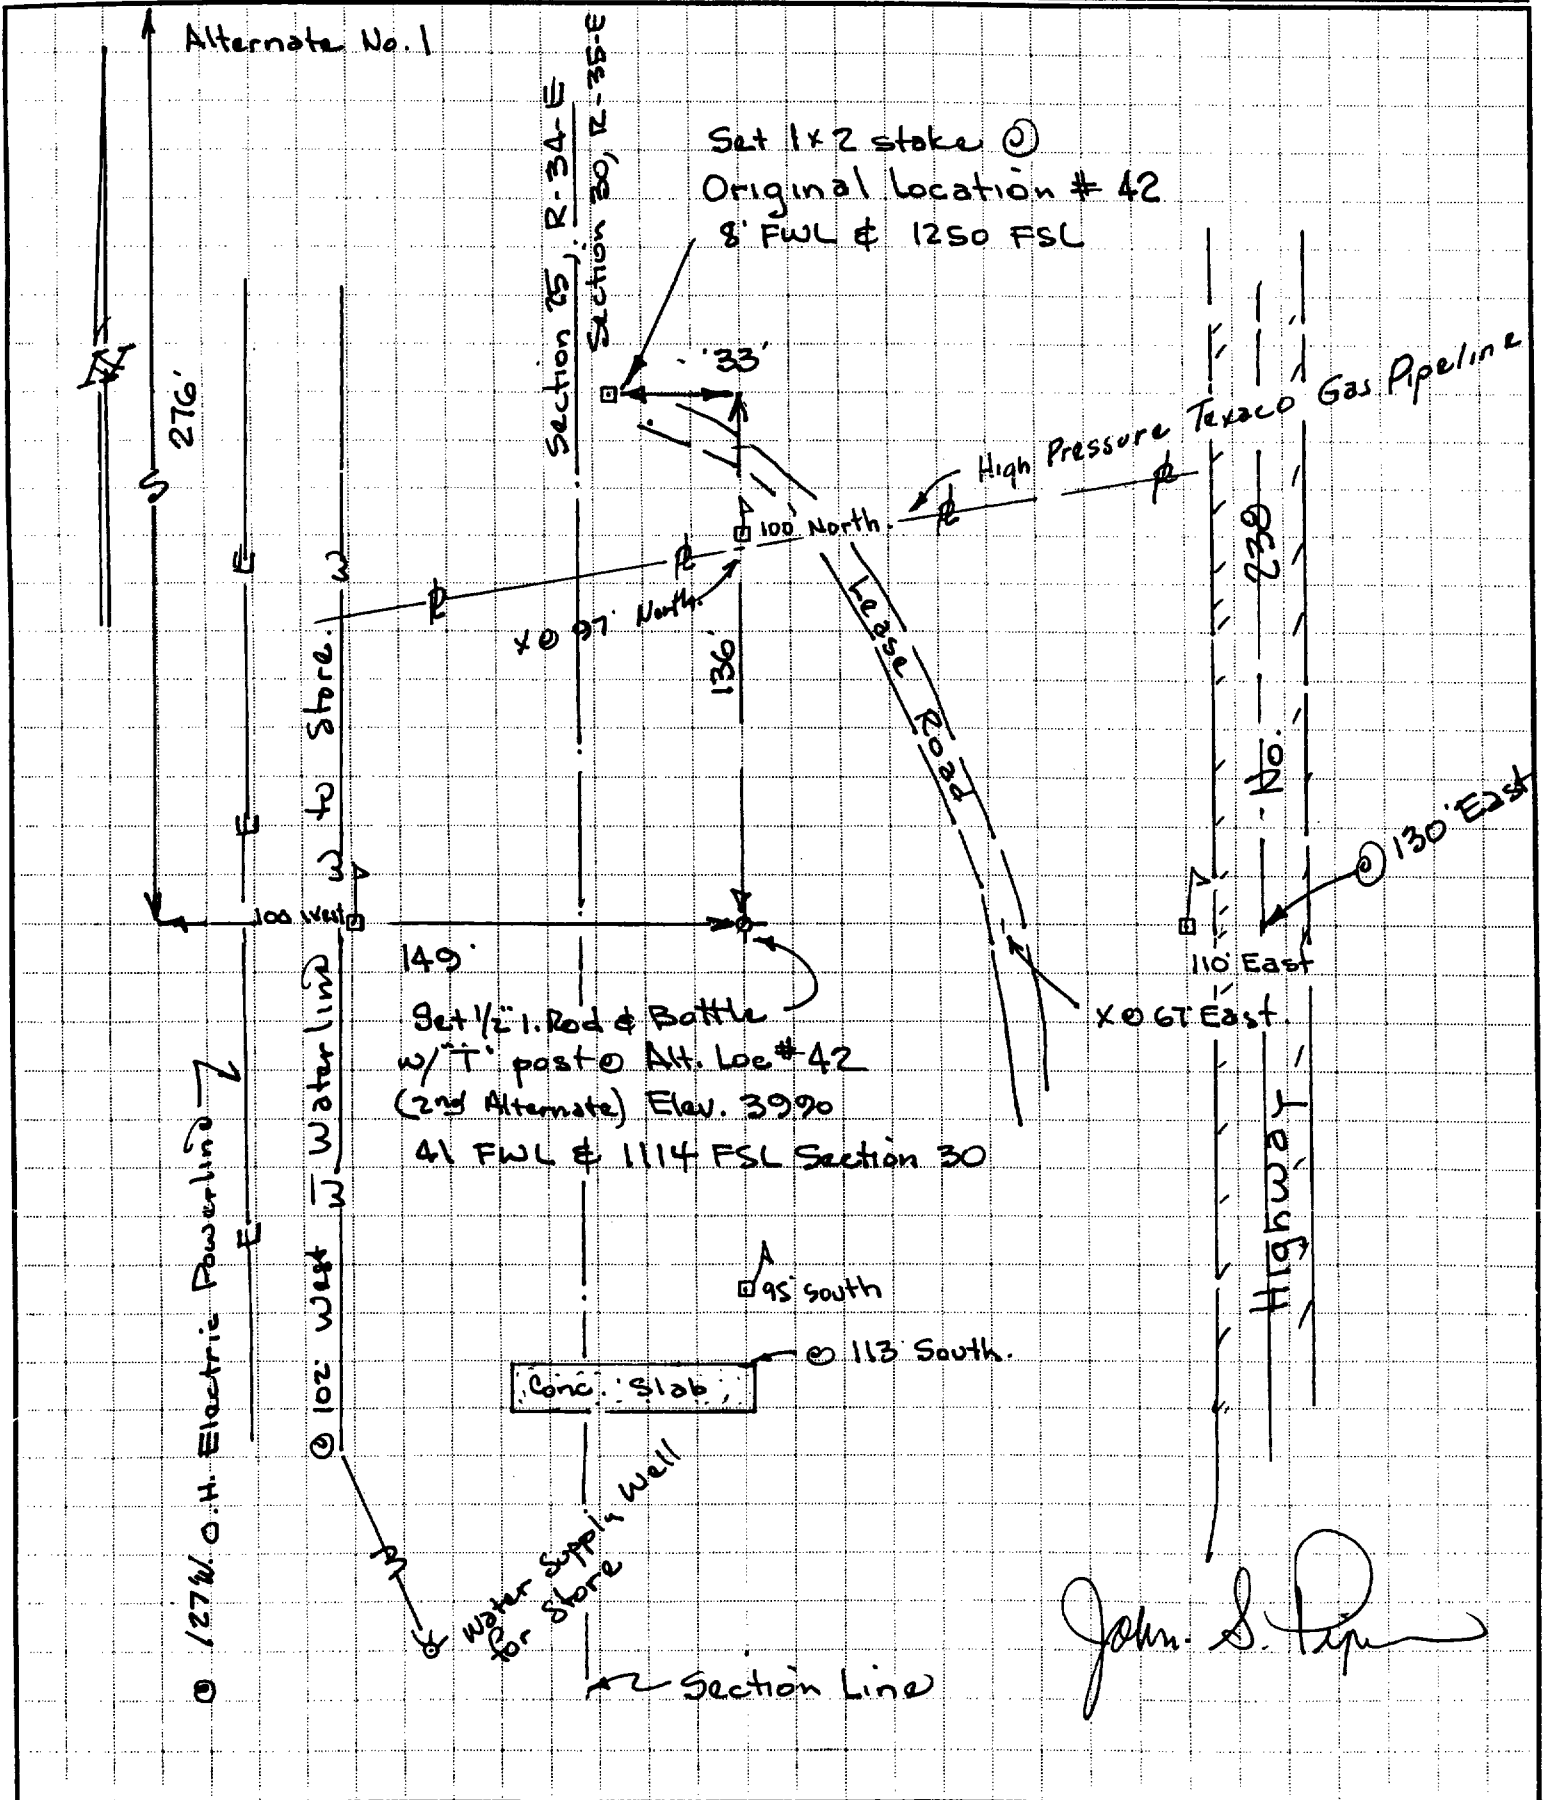 Alternate No. 1
Section 25, R-34-E
Section 30, R-35-E
Set 1x2 stake @
Original Location # 42
8' FWL & 1250 FSL
33'
276'
High Pressure Texaco Gas Pipeline
100' North.
X @ 97' North.
136'
Lease Road
W to Store W
E
E
E
PL
PL
PL
PL
Highway No. 238
@ 130' East
110' East
X @ 67 East.
100 West
149'
Set 1/2" I. Rod & Bottle
w/ "T" post @ Alt. Loc # 42
(2nd Alternate) Elev. 3990
41 FWL & 1114 FSL Section 30
@ 127 W. O.H. Electric Powerline
@ 102' West W Waterline W
95' South
@ 113' South.
Conc. Slab
W
Water Supply Well
for Store
Section Line
John S.